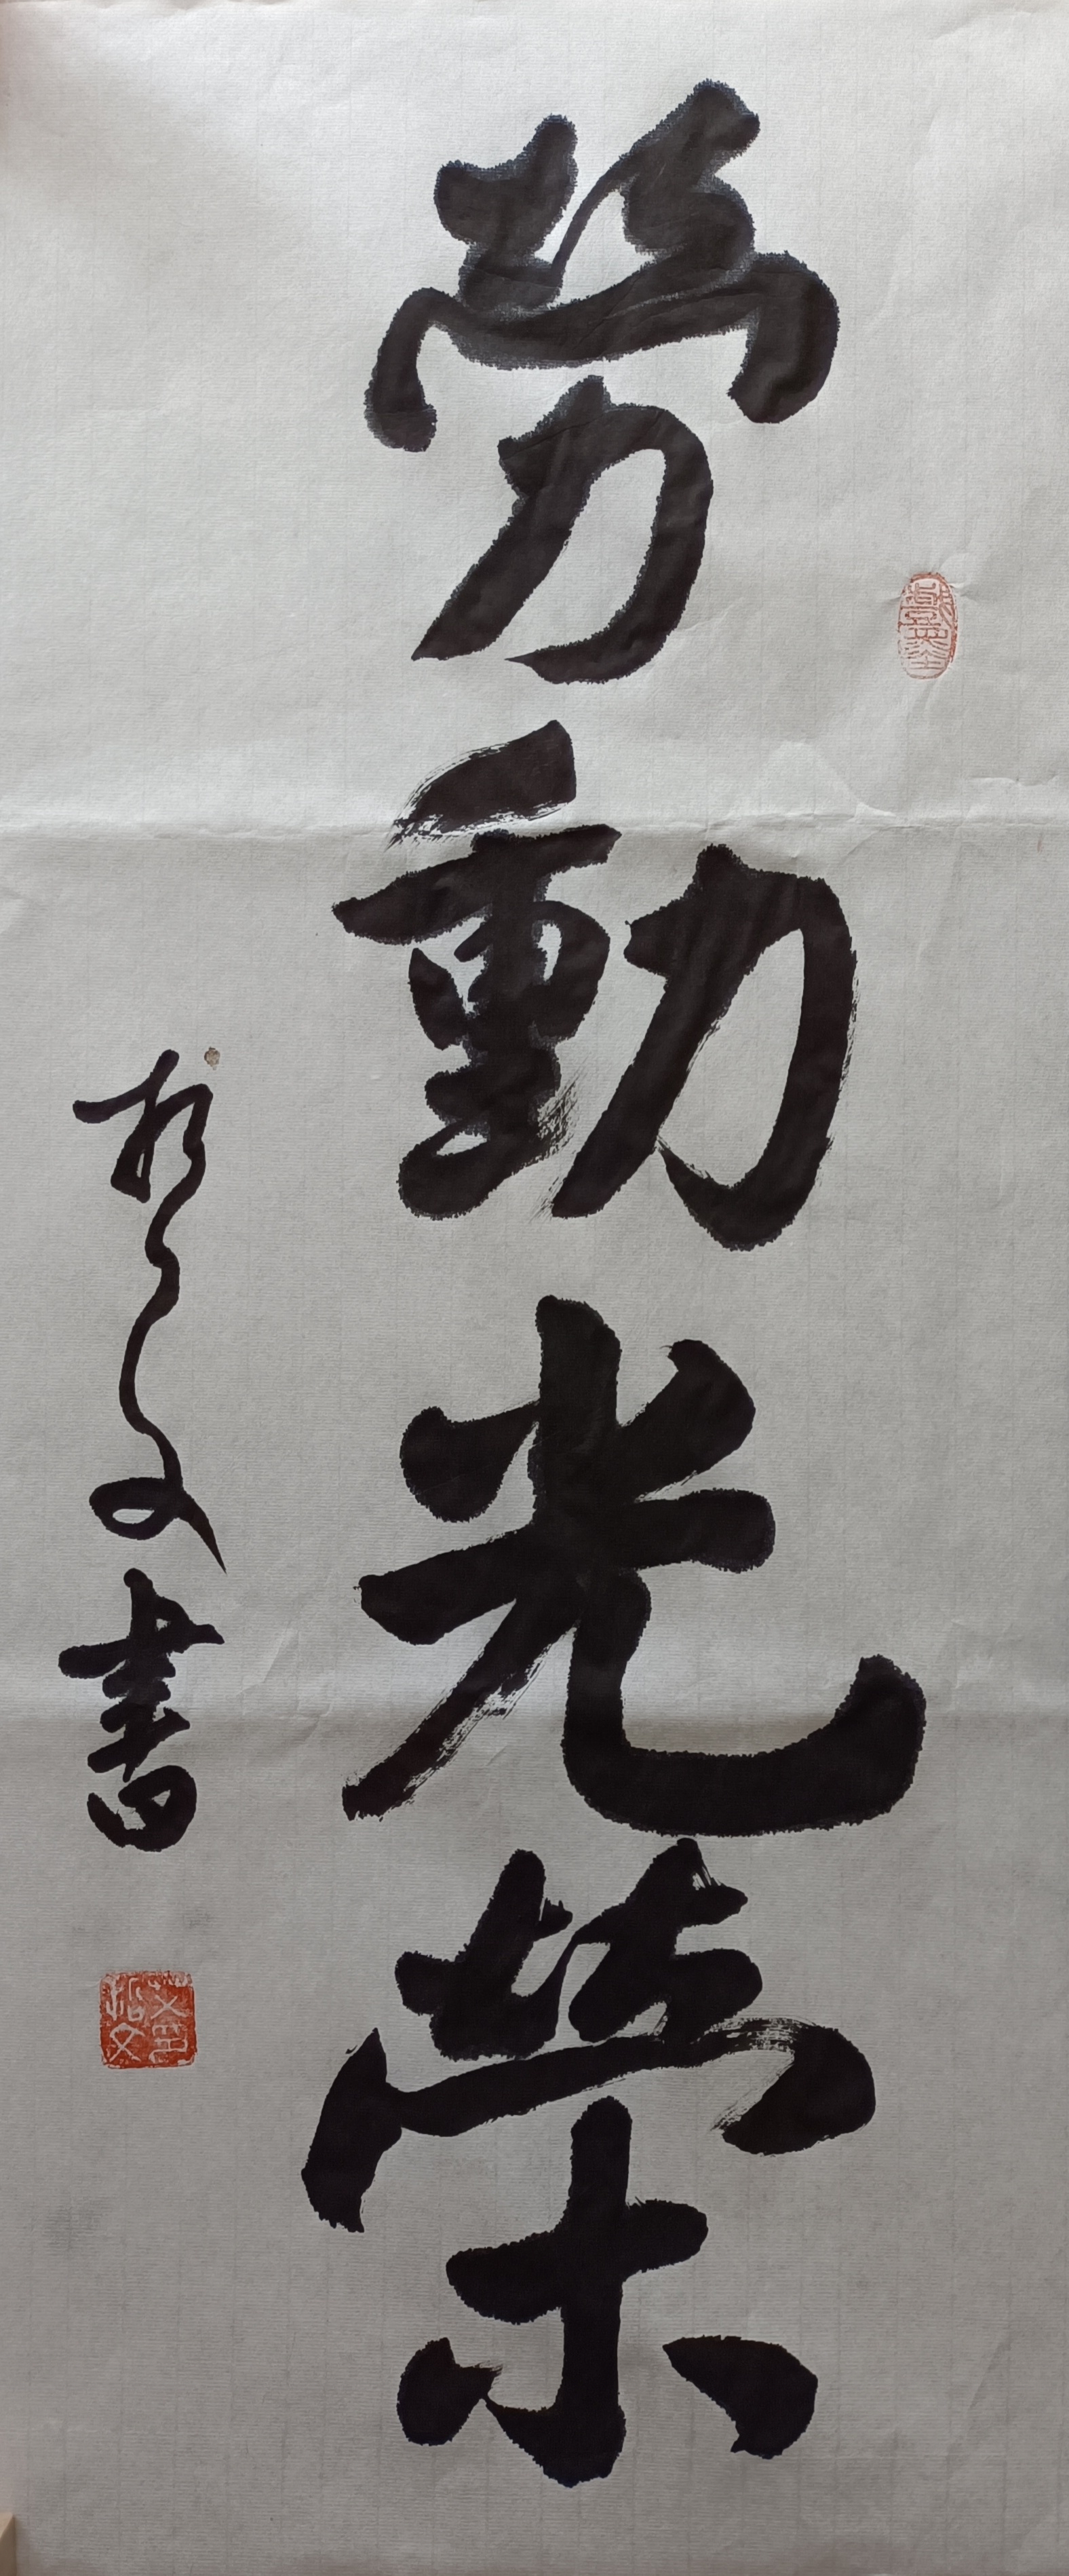 勞動光榮
文書